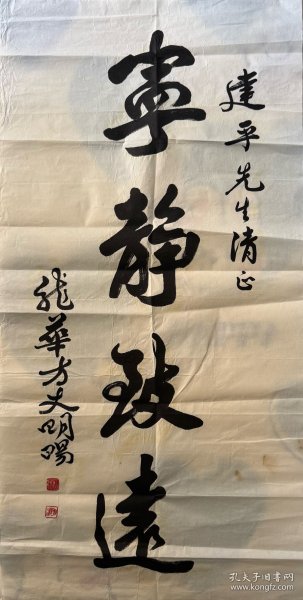 建平先生清正
寧靜致遠
龍華方丈明暘
孔夫子旧书网
www.kongfz.com